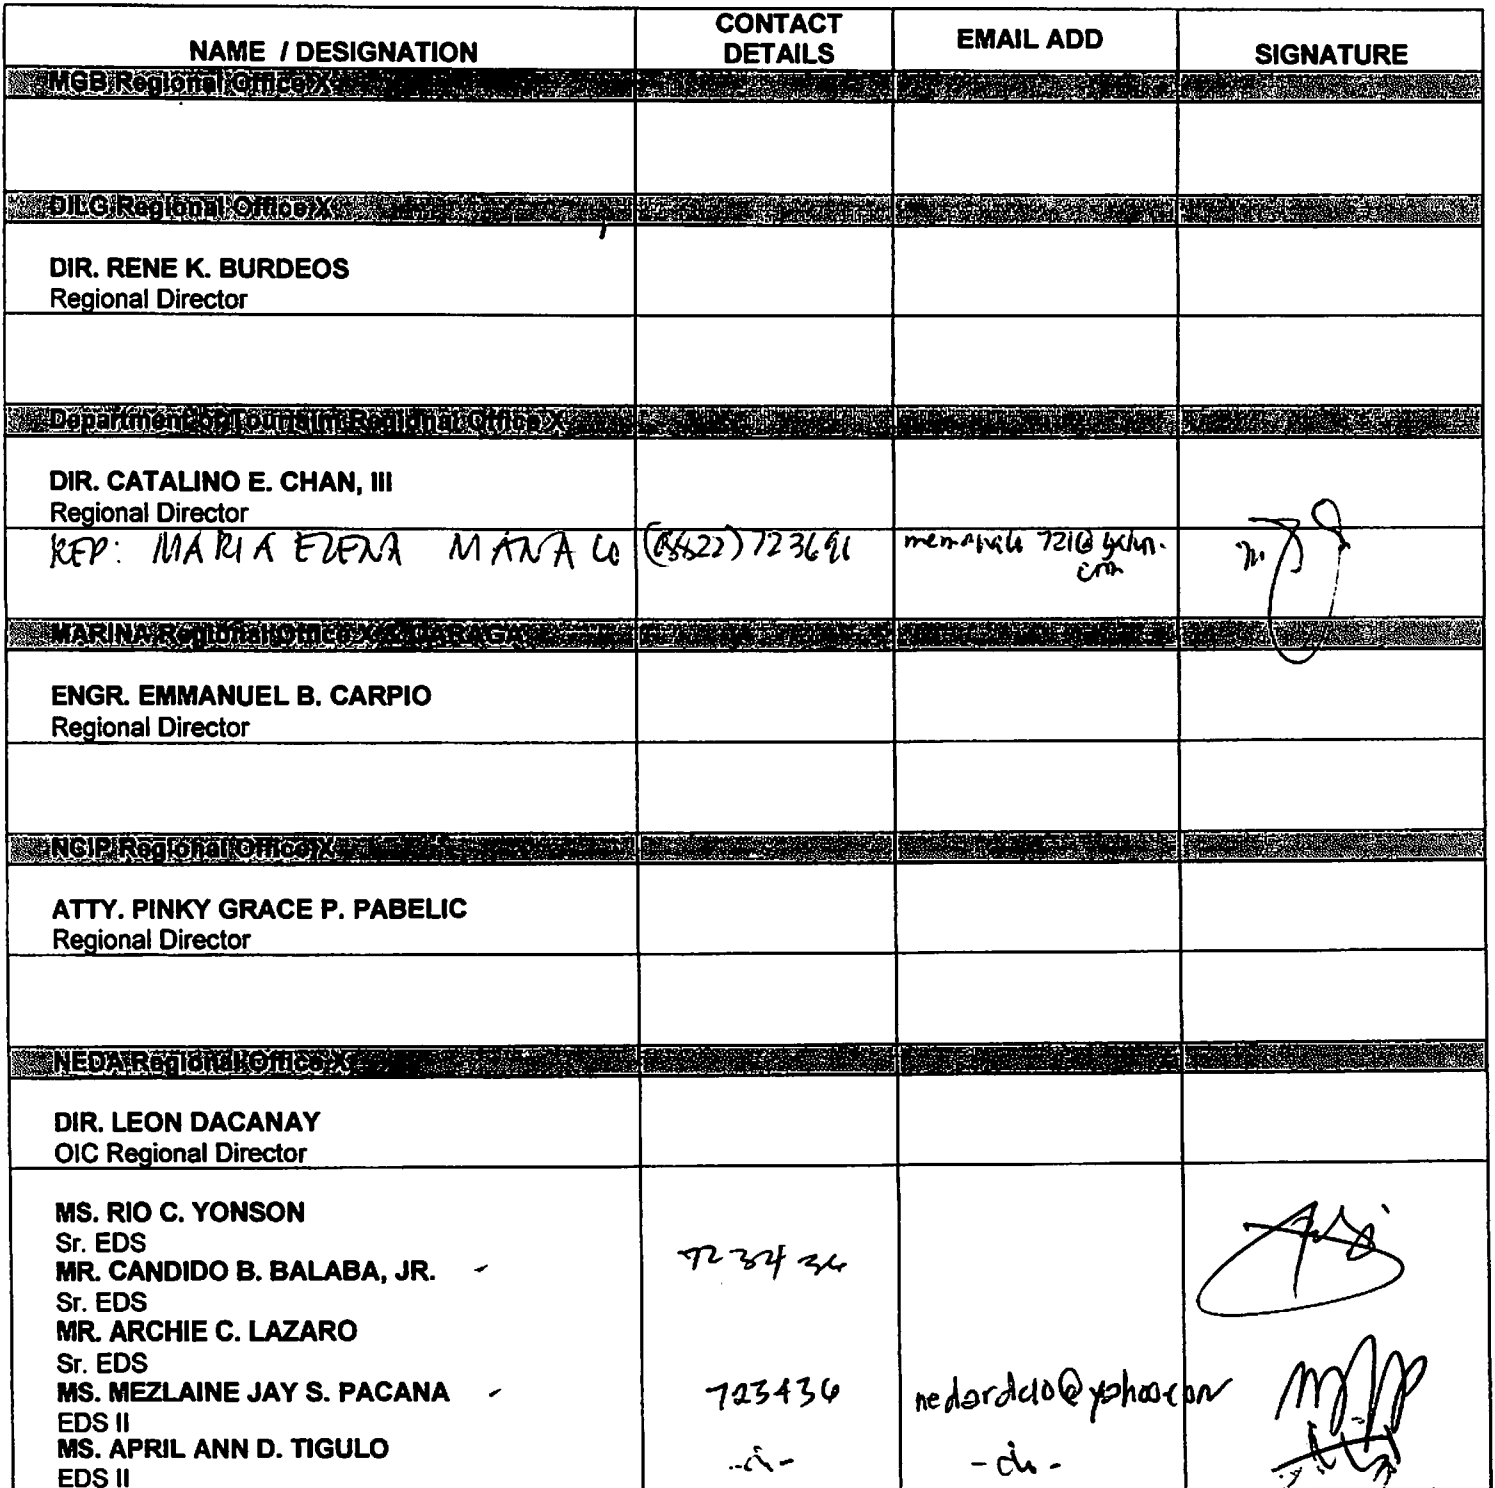 NAME / DESIGNATION
CONTACT
DETAILS
EMAIL ADD
SIGNATURE
MGB Regional Office X
DILG Regional Office X
DIR. RENE K. BURDEOS
Regional Director
Department of Tourism Regional Office X
DIR. CATALINO E. CHAN, III
Regional Director
REP: MARIA ELENA (8822) 723696
MARINA Regional Office X & CARAGA
ENGR. EMMANUEL B. CARPIO
Regional Director
NCIP Regional Office X
ATTY. PINKY GRACE P. PABELIC
Regional Director
NEDA Regional Office X
DIR. LEON DACANAY
OIC Regional Director
MS. RIO C. YONSON
Sr. EDS
MR. CANDIDO B. BALABA, JR. 723436
Sr. EDS
MR. ARCHIE C. LAZARO
Sr. EDS
MS. MEZLAINE JAY S. PACANA 723436
EDS II
MS. APRIL ANN D. TIGULO
EDS II